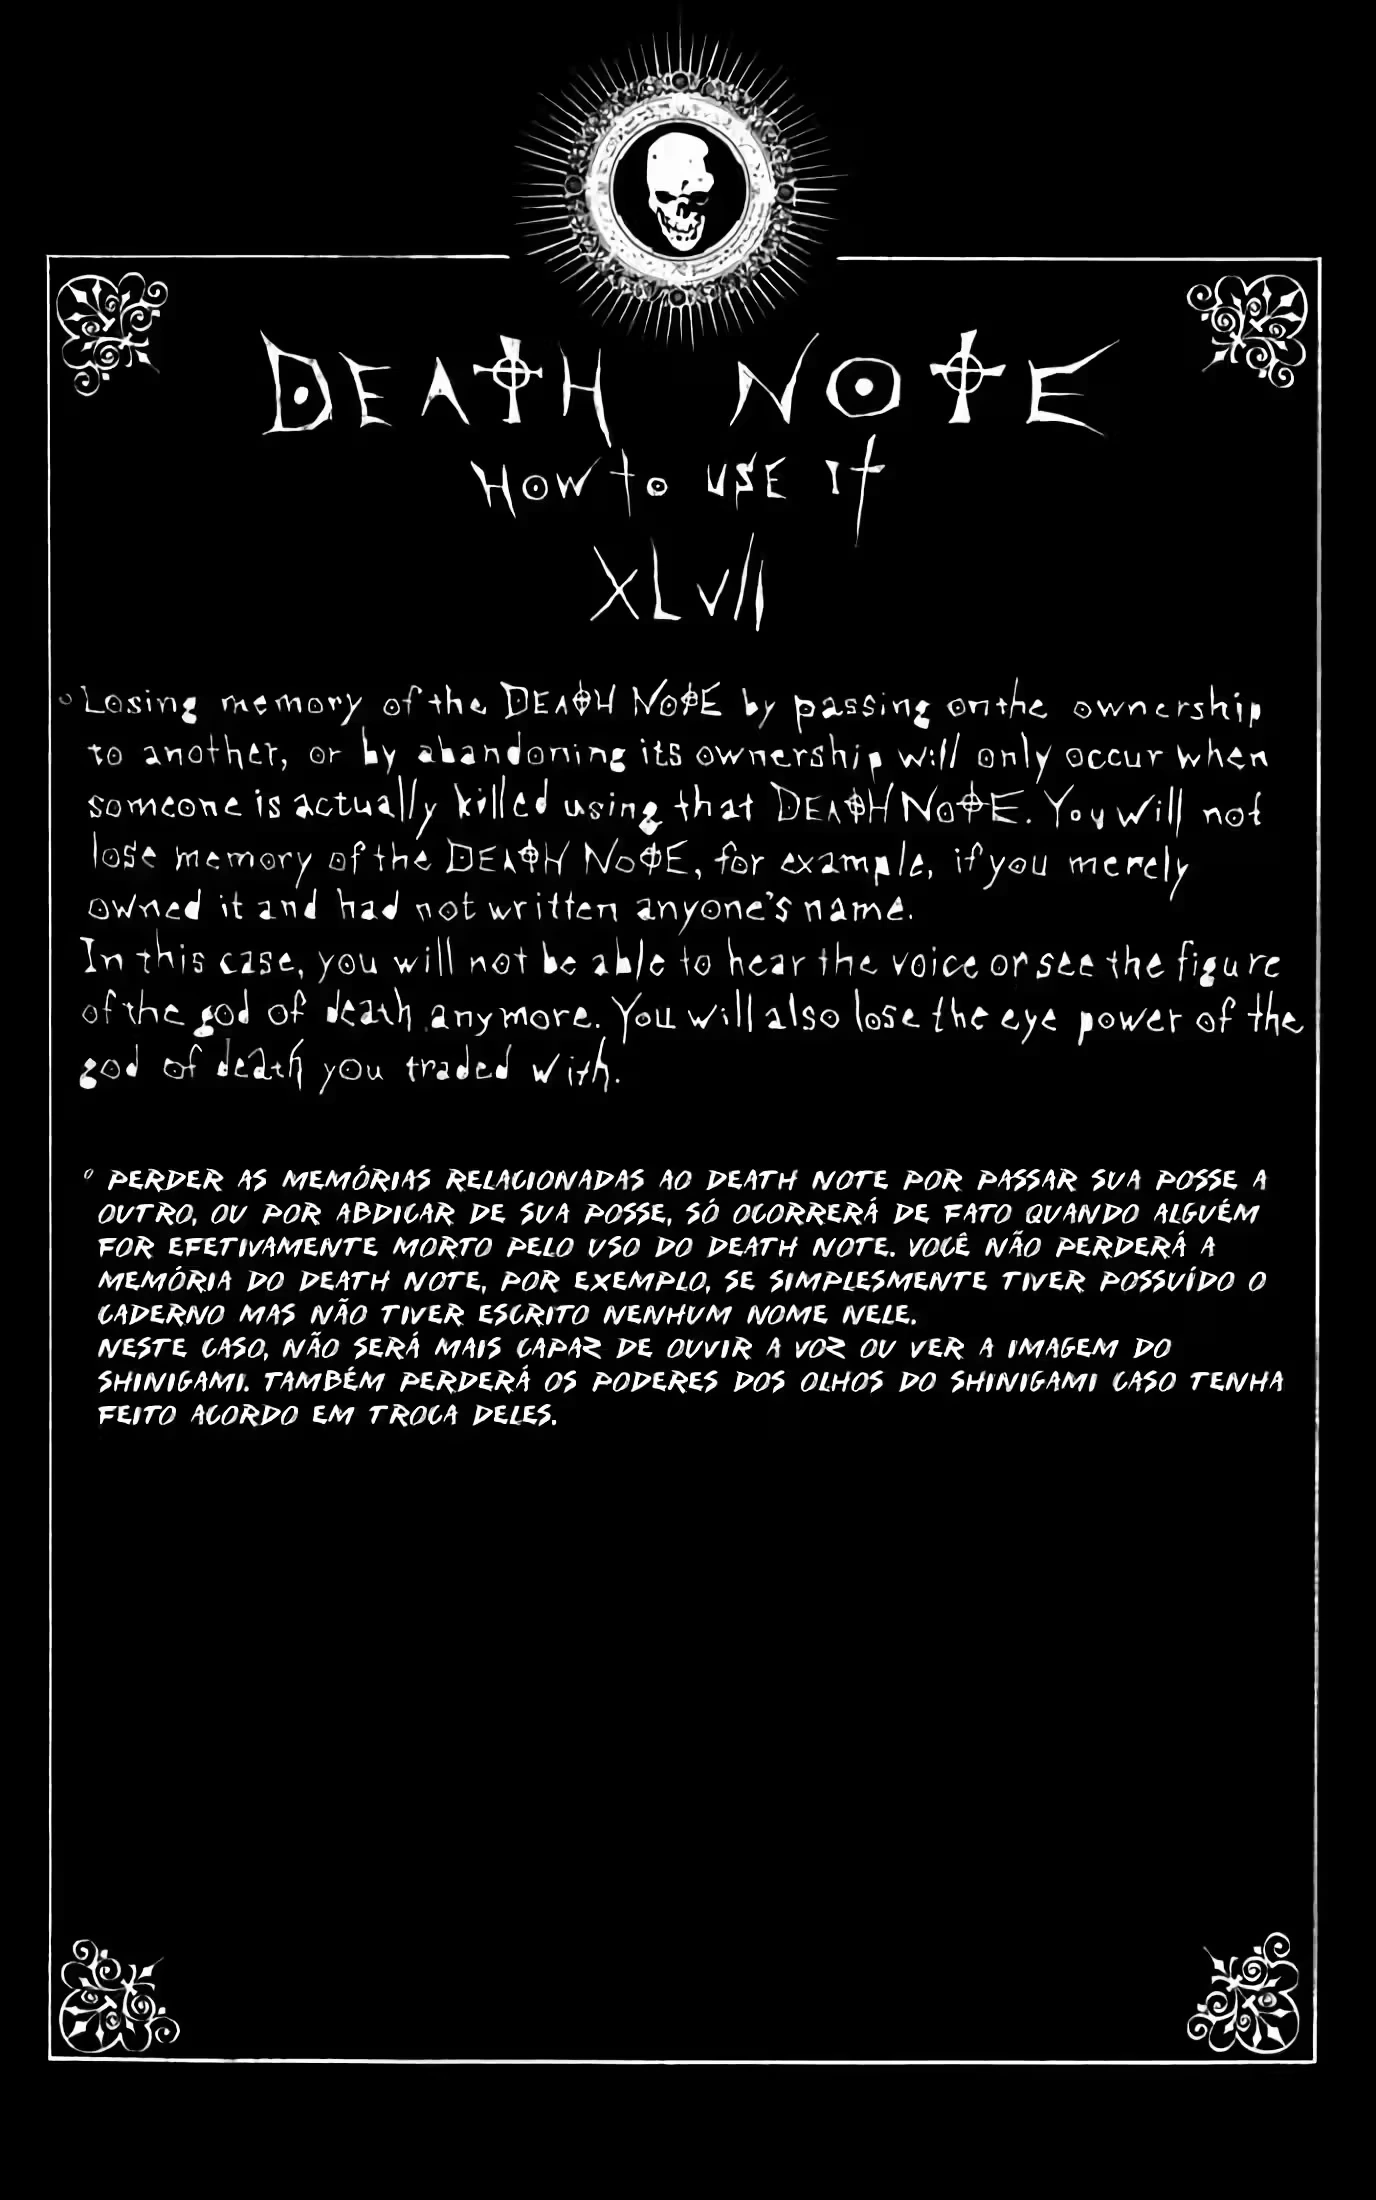 DEATH NOTE
How to use it
XLVII
○ Losing memory of the DEATH NOTE by passing on the ownership
to another, or by abandoning its ownership will only occur when
someone is actually killed using that DEATH NOTE. You will not
lose memory of the DEATH NOTE, for example, if you merely
owned it and had not written anyone's name.
In this case, you will not be able to hear the voice or see the figure
of the god of death anymore. You will also lose the eye power of the
god of death you traded with.
○ PERDER AS MEMÓRIAS RELACIONADAS AO DEATH NOTE POR PASSAR SUA POSSE A
OUTRO, OU POR ABDICAR DE SUA POSSE, SÓ OCORRERÁ DE FATO QUANDO ALGUÉM
FOR EFETIVAMENTE MORTO PELO USO DO DEATH NOTE. VOCÊ NÃO PERDERÁ A
MEMÓRIA DO DEATH NOTE, POR EXEMPLO, SE SIMPLESMENTE TIVER POSSUÍDO O
CADERNO MAS NÃO TIVER ESCRITO NENHUM NOME NELE.
NESTE CASO, NÃO SERÁ MAIS CAPAZ DE OUVIR A VOZ OU VER A IMAGEM DO
SHINIGAMI. TAMBÉM PERDERÁ OS PODERES DOS OLHOS DO SHINIGAMI CASO TENHA
FEITO ACORDO EM TROCA DELES.